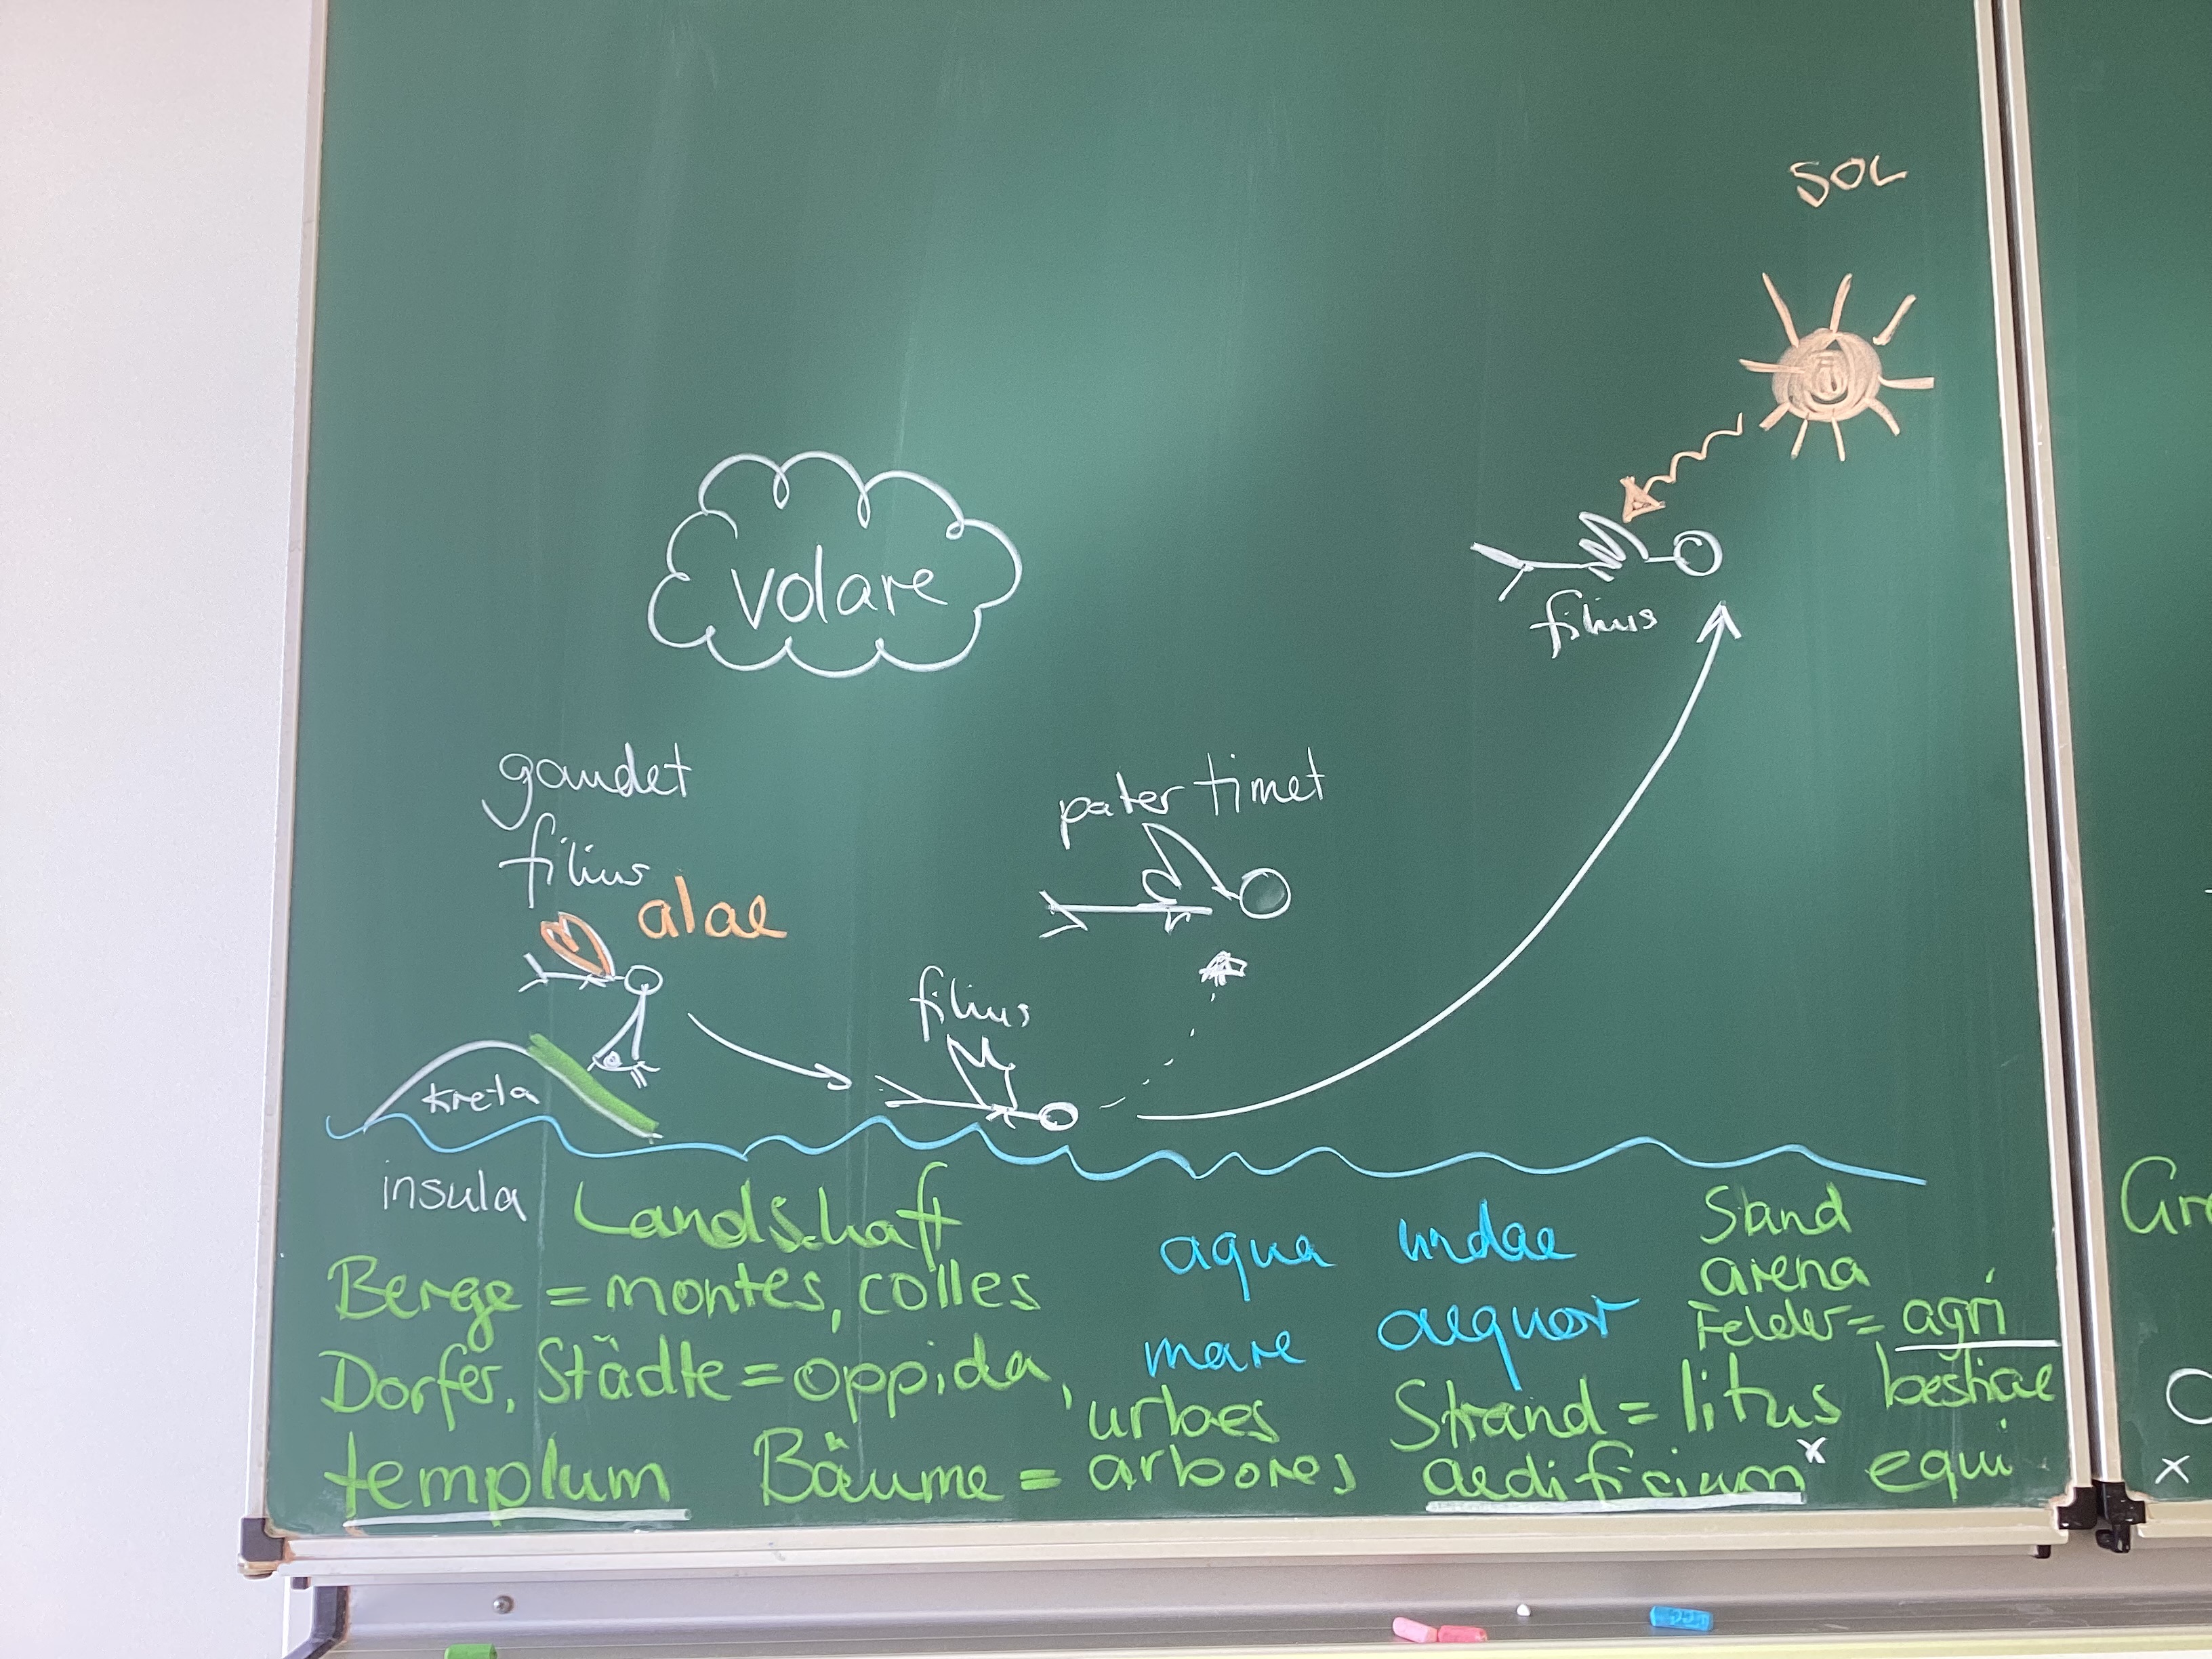 SOL
volare
filius
gaudet
filius
alae
pater timet
filius
Kreta
insula
Landschaft
aqua undae
Sand
arena
Berge = montes, colles
mare aequor
Felder = agri
Dörfer, Städte = oppida, urbes
Strand = litus
bestiae
templum
Bäume = arbores
aedificium x
equi
Gr
x